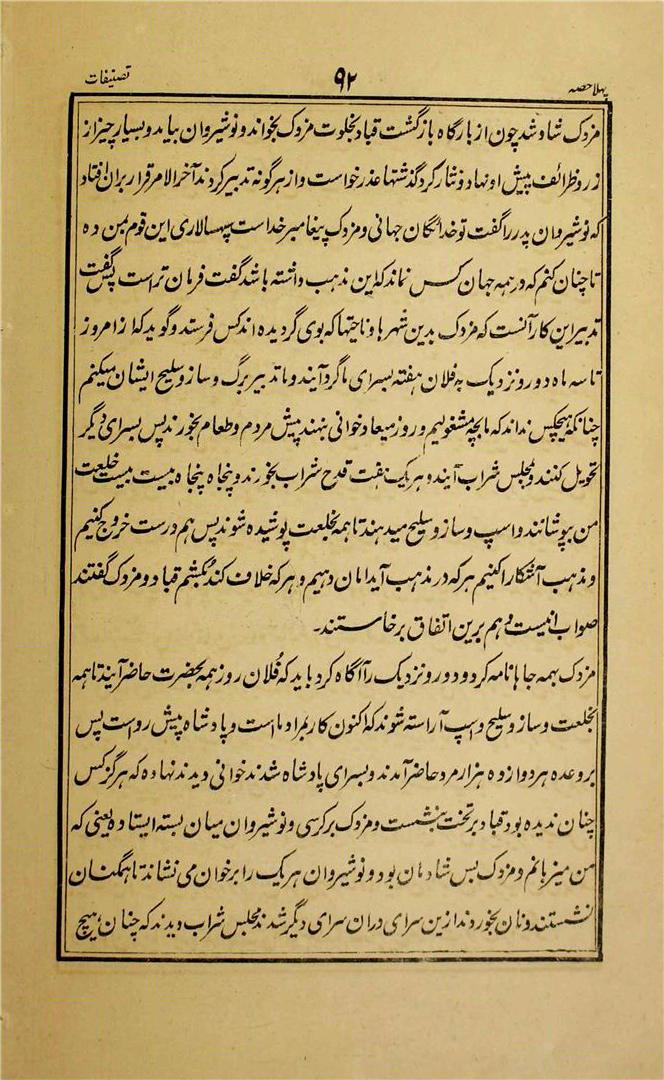 پہلا حصہ ۹۲ تصنیفات
مزدک شاد شد چون از بارگاه بازگشت قباد بخلوت مزدک بخواند و نوشیروان بیاید و بسیار چیز از
زر و ظرائف پیش او نهاد و نثار کرد گذشتها عذر خواست و از هر گونه تدبیر کردند آخر الامر قرار بران افتاد
که نوشیروان پدر را گفت تو خدائگان جهانی و مزدک پیغامبر خداست سپهسالاری این قوم بمن ده
تا چنان کنم که در همه جهان کس نماند که این مذهب داشته باشد گفت فرمان تراست پس گفت
تدبیر این کار آنست که مزدک بدین شهرها و ناحیتها که بوی گردیده اند کس فرستد و گوید که از امروز
تا سه ماه دور و نزدیک به فلان هفته بسرای ما گرد آیند و ما تدبیر برگ و ساز و سلیح ایشان میکنم
چنانکه هیچکس نداند که ما بچه مشغولیم و روز میعاد خوانی بنهند پیش مردم و طعام بخورند پس بسرای دیگر
تحویل کنند و بمجلس شراب آیند و هر یک هفت قدح شراب بخورند و پنجاه پنجاه بیست بیست خلعت
من بپوشانند و اسپ و ساز و سلیح میدهند تا همه بخلعت پوشیده شوند پس هم درست خروج کنیم
و مذهب آشکارا کنیم هر که در مذهب آید امان دهیم و هر که خلاف کند بکشم قباد و مزدک گفتند
صواب اینست و هم برین اتفاق برخاستند۔
مزدک بهمه جاها نامه کرد و دور و نزدیک را آگاه کرد باید که فلان روز همه بحضرت حاضر آیند تا همه
بخلعت و ساز و سلیح و اسپ آراسته شوند که اکنون کار بمراد ماست و پادشاه پیش روست پس
بر وعده هر دوازده هزار مرد حاضر آمدند و بسرای پادشاه شدند خوانی دیدند نهاده که هرگز کس
چنان ندیده بود قباد بر تخت بنشست و مزدک بر کرسی و نوشیروان میان بسته ایستاده یعنی که
من میزبانم و مزدک بس شادمان بود و نوشیروان هر یک را بر خوان می نشاند تا همگنان
نشستند و نان بخوردند ازین سرای دران سرای دیگر شدند مجلس شراب دیدند که چنان هیچ